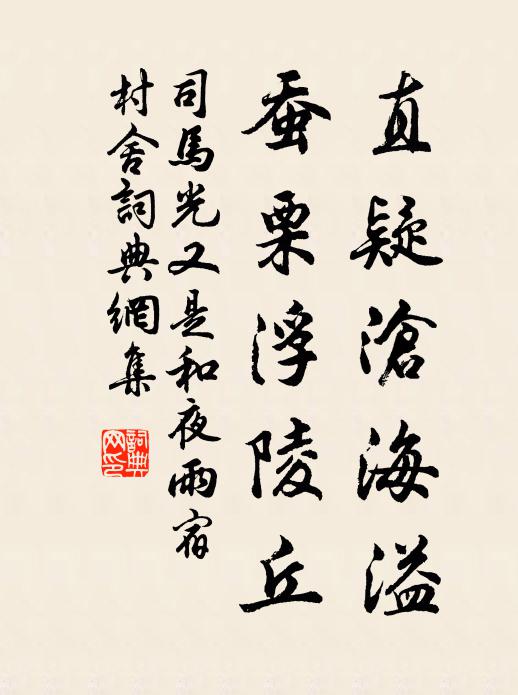 直疑滄海溢
蚕栗浮陵丘
司馬光又是和夜雨宿
村舍詞典網集
詞典
网印